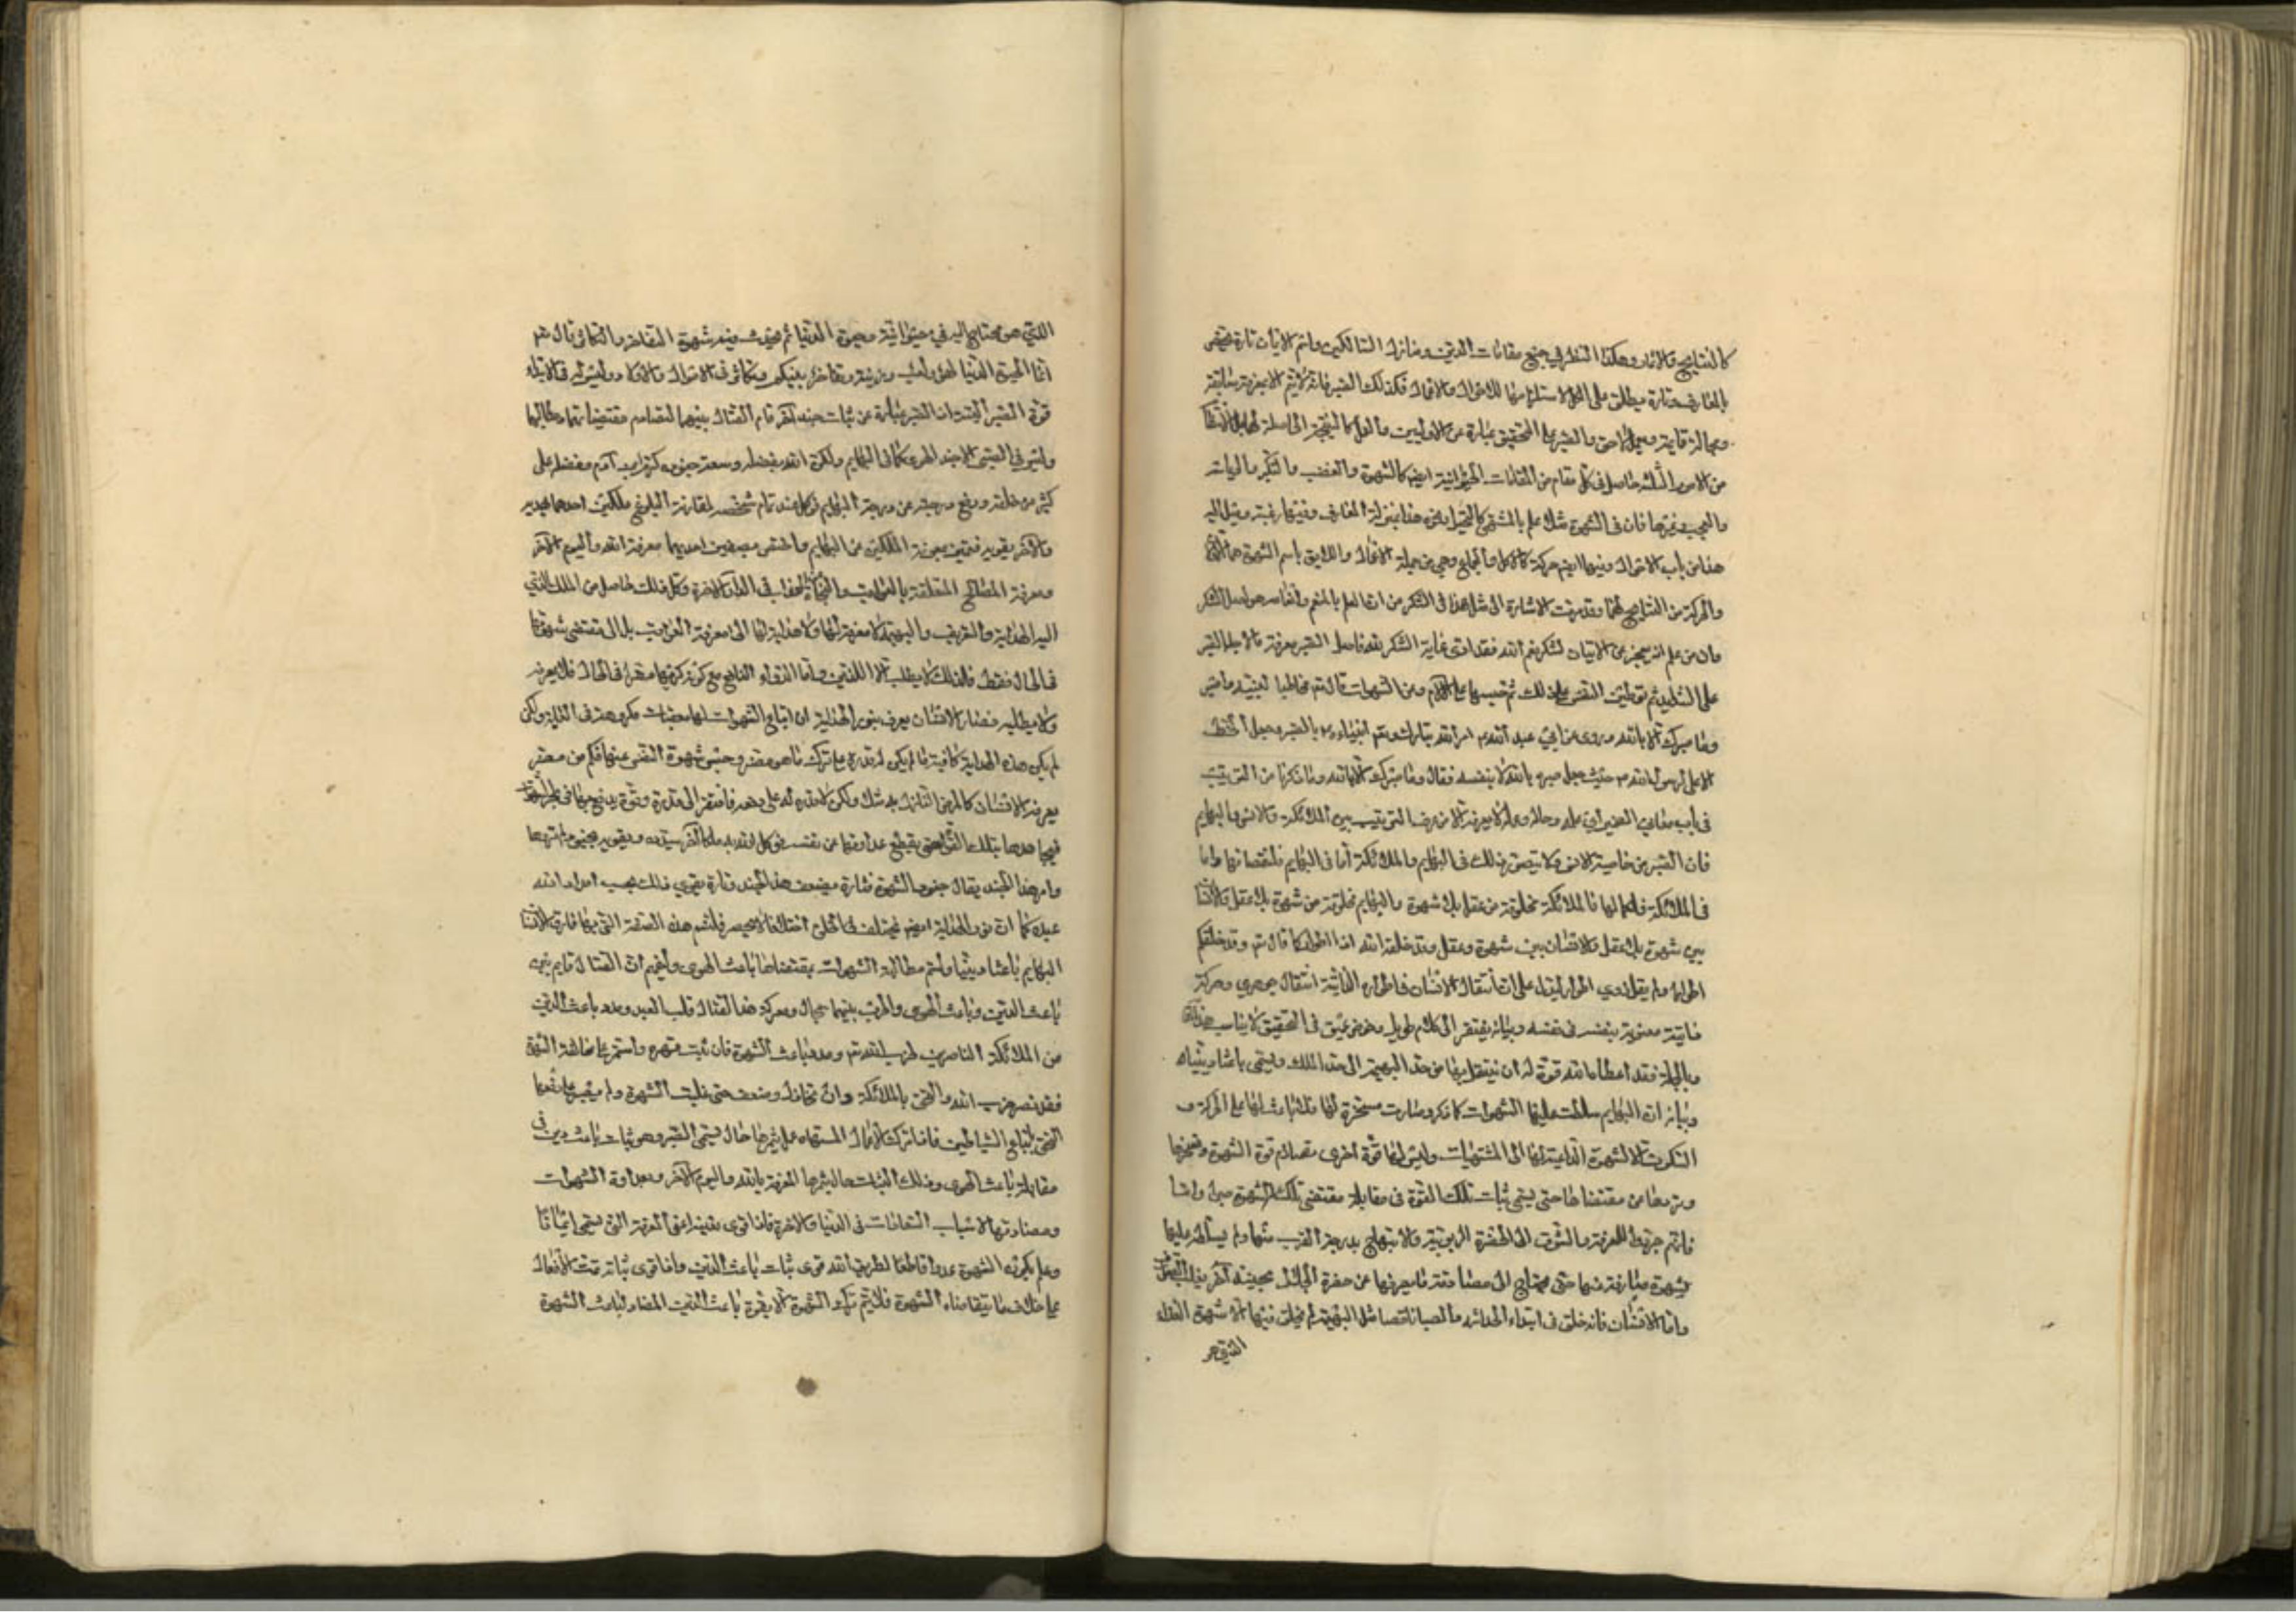 كالنتايج والاثار وهكذا النظر في جميع مقامات الدين ومنازل السالكين واسم الايمان تارة يختص
بالمعارف وتارة يطلق على الكل لاستلزامها للاحوال والاعمال فكذلك الصبر فانه لا يتم الا بمعرفة سابقة
وبحالة قايمة وعمل لاحق والصبر على التحقيق عبارة عن الاوليين والعمل كالنتيجة الحاصلة لهما
من الامور الثلثة حاصل في كل مقام من المقامات الحيوانية ايضا كالشهوة والغضب والتكبر والريات
والعجب وغيرها فان في الشهوة مثلا علم بالمشتهى كالتخيل ونحوه هذا بمنزلة المعارف وفيها رغبة وميل اليه
هذا من باب الاحوال وفيها ايضا حركة كالاكل والجماع وهي من جملة الاعمال واللايق باسم الشهوة
والحركة من النتايج لهما وقد مرت الاشارة الى مثل هذا في الشكر من ان العلم بالمنعم وانعامه هو اصل الشكر
وان من علم انه يعجز عن الاتيان لشكر نعم الله فقد ادى غاية الشكر لله فاصل الصبر معرفة
على الشدايد ثم توطين النفس على ذلك ثم حبسها على الالام ومن الشهوات قال تع مخاطبا لنبيه
وما صبرك الا بالله وروى عن ابي عبد الله م امر الله تبارك وتع انبياءه بالصبر وجعل الحظ
الاعلى لرسول الله م حيث جعل صبره بالله لا بنفسه فقال وما صبرك الا بالله وما ذكرنا من الترتيب
في باب معاني الصبر اي علمه وحاله وعمله لا يعرف الا من عرف الترتيب بين الملائكة والانس والبهايم
فان الصبر من خاصية الانس ولا يتصور ذلك في البهايم والملائكة اما في البهايم فلنقصانها واما
في الملائكة فلكمالها فالملائكة مخلوقة من عقل بلا شهوة والبهايم مخلوقة من شهوة بلا عقل والانسان
بين شهوة بلا عقل والانسان بين شهوة وعقل وقد خلقه الله اطوارا كما قال تع وقد خلقكم
اطوارا ولم يقل ذوي اطوار ليدل على ان انتقال الانسان في اطواره الذاتية انتقال جوهري وحركة
ذاتية معنوية بنفسه في نفسه وبيانه يفتقر الى كلام طويل وخوض عميق في التحقيق لا يناسب
وبالجملة فقد اعطاه الله قوة له ان ينتقل بها من حد البهيمة الى حد الملك ويسمى باعثا دينيا
وبيانه ان البهايم سلطت عليها الشهوات كما ذكر وصارت مسخرة لها فلا باعث لها على الحركة و
السكون الا الشهوة الداعية لها الى المشتهيات وليس لها قوة اخرى تصادم قوة الشهوة وتسخرها
وتردها عن مقتضاها حتى يسمى ثبات تلك القوة في مقابلة مقتضى تلك الشهوة صبرا واما
فانهم جردوا للمعرفة والشوق الى الحضرة الربوبية والابتهاج بدرجة القرب منها ولم يسلط عليها
شهوة صارفة عنها حتى يحتاج الى مصادمة ما يصرفها عن حضرة الجلال بجند آخر يغلب
واما الانسان فانه خلق في ابتداء الحداثة والصبا ناقصا مثل البهيمة لم يخلق فيها الا شهوة الغذاء
الذي هو
الذي هو محتاج اليه في حيوانيته وحيوة الدنيا ثم يحدث فيه شهوة التفاخر والتكاثر قال تع
انما الحيوة الدنيا لعب ولهو وزينة وتفاخر بينكم وتكاثر في الاموال والاولاد وليس له في الابتداء
قوة الصبر البتة ان الصبر عبارة عن ثبات جند آخر قام القتال بينهما لتصادم مقتضياتهما ومطالبهما
وليس في الصبي الا جند الهوى كما في البهايم ولكن الله بفضله وسعة جوده كرم بني آدم وفضلهم على
كثير من خلقه ورفع درجته عن درجة البهايم فوكل عند تمام شخصه لمقارنة البلوغ ملكين احدهما يهديه
والاخر يقويه فتميز بمعونة الملكين عن البهايم واختص بصفتين احديهما معرفة الله واليوم الاخر
ومعرفة المصالح المتعلقة بالعواقب في الدار الاخرة وكل ذلك حاصل من الملك الذي
اليه الهداية والتعريف والبهيمة لا معرفة لها ولا هداية لها الى معرفة العواقب بل الى مقتضى شهوتها
في الحال فقط فلذلك لا يطلب الا اللذيذ واما الدواء النافع مع كونه كريها مضرا في الحال فلا يعرفه
ولا يطلبه فصار الانسان يعرف بنور الهداية ان اتباع الشهوات لها مغبات مكروهة في العاقبة ولكن
لم يكن هذه الهداية كافية ما لم يكن له قدرة على ترك ما هو مضر وحبس شهوة النفس عنها فكم من مضر
يعرفه الانسان كالمرض النازل به مثلا ولكن لا قدرة له على دفعه فافتقر الى قدرة وقوة يدفع بها في نحر الشهوة
فيجاهدها بتلك القوة حتى يقطع عداوتها عن نفسه فوكل الله به ملكا آخر يسدده ويقويه بجنود لم تروها
وامر هذا الجند بقتال جنود الشهوة فتارة يضعف هذا الجند وتارة يقوى ذلك بحسب امداد الله
عبده كما ان نور الهداية ايضا يختلف في الخلق اختلافا لا ينحصر فلنسم هذه الصفة التي بها فارق الانسان
البهايم باعثا دينيا ولنسم مطالبة الشهوات بمقتضاها باعث الهوى وليفهم ان القتال قايم بين
باعث الدين وباعث الهوى والحرب بينهما سجال ومعركة هذا القتال قلب العبد ومدد باعث الدين
من الملائكة الناصرين لحزب الله تع ومدد باعث الشهوة فان ثبت حتى قهره واستمر على مخالفة الشهوة
فقد نصر حزب الله والتحق بالملائكة وان تخاذل وضعف حتى غلبت الشهوة ولم يصبر على دفعها
التحق باتباع الشياطين فاذا ترك الاعمال المشتهاة عمل يثمرها حال يسمى الصبر وهو ثبات باعث الدين في
مقابلة باعث الهوى وذلك الثبات حال يثمرها المعرفة بالله واليوم الآخر وبعداوة الشهوات
ومضادتها لاسباب السعادات في الدنيا والاخرة فاذا قوى يقينه اعني المعرفة التي يسمى ايمانا
وعلم بكون الشهوة عدوا قاطعا لطريق الله قوى ثبات باعث الدين واذا قوى ثباته تمت الافعال
على خلاف ما يتقاضاه الشهوة فلا يتم ترك الشهوة الا بقوة باعث الدين المضاد لباعث الشهوة